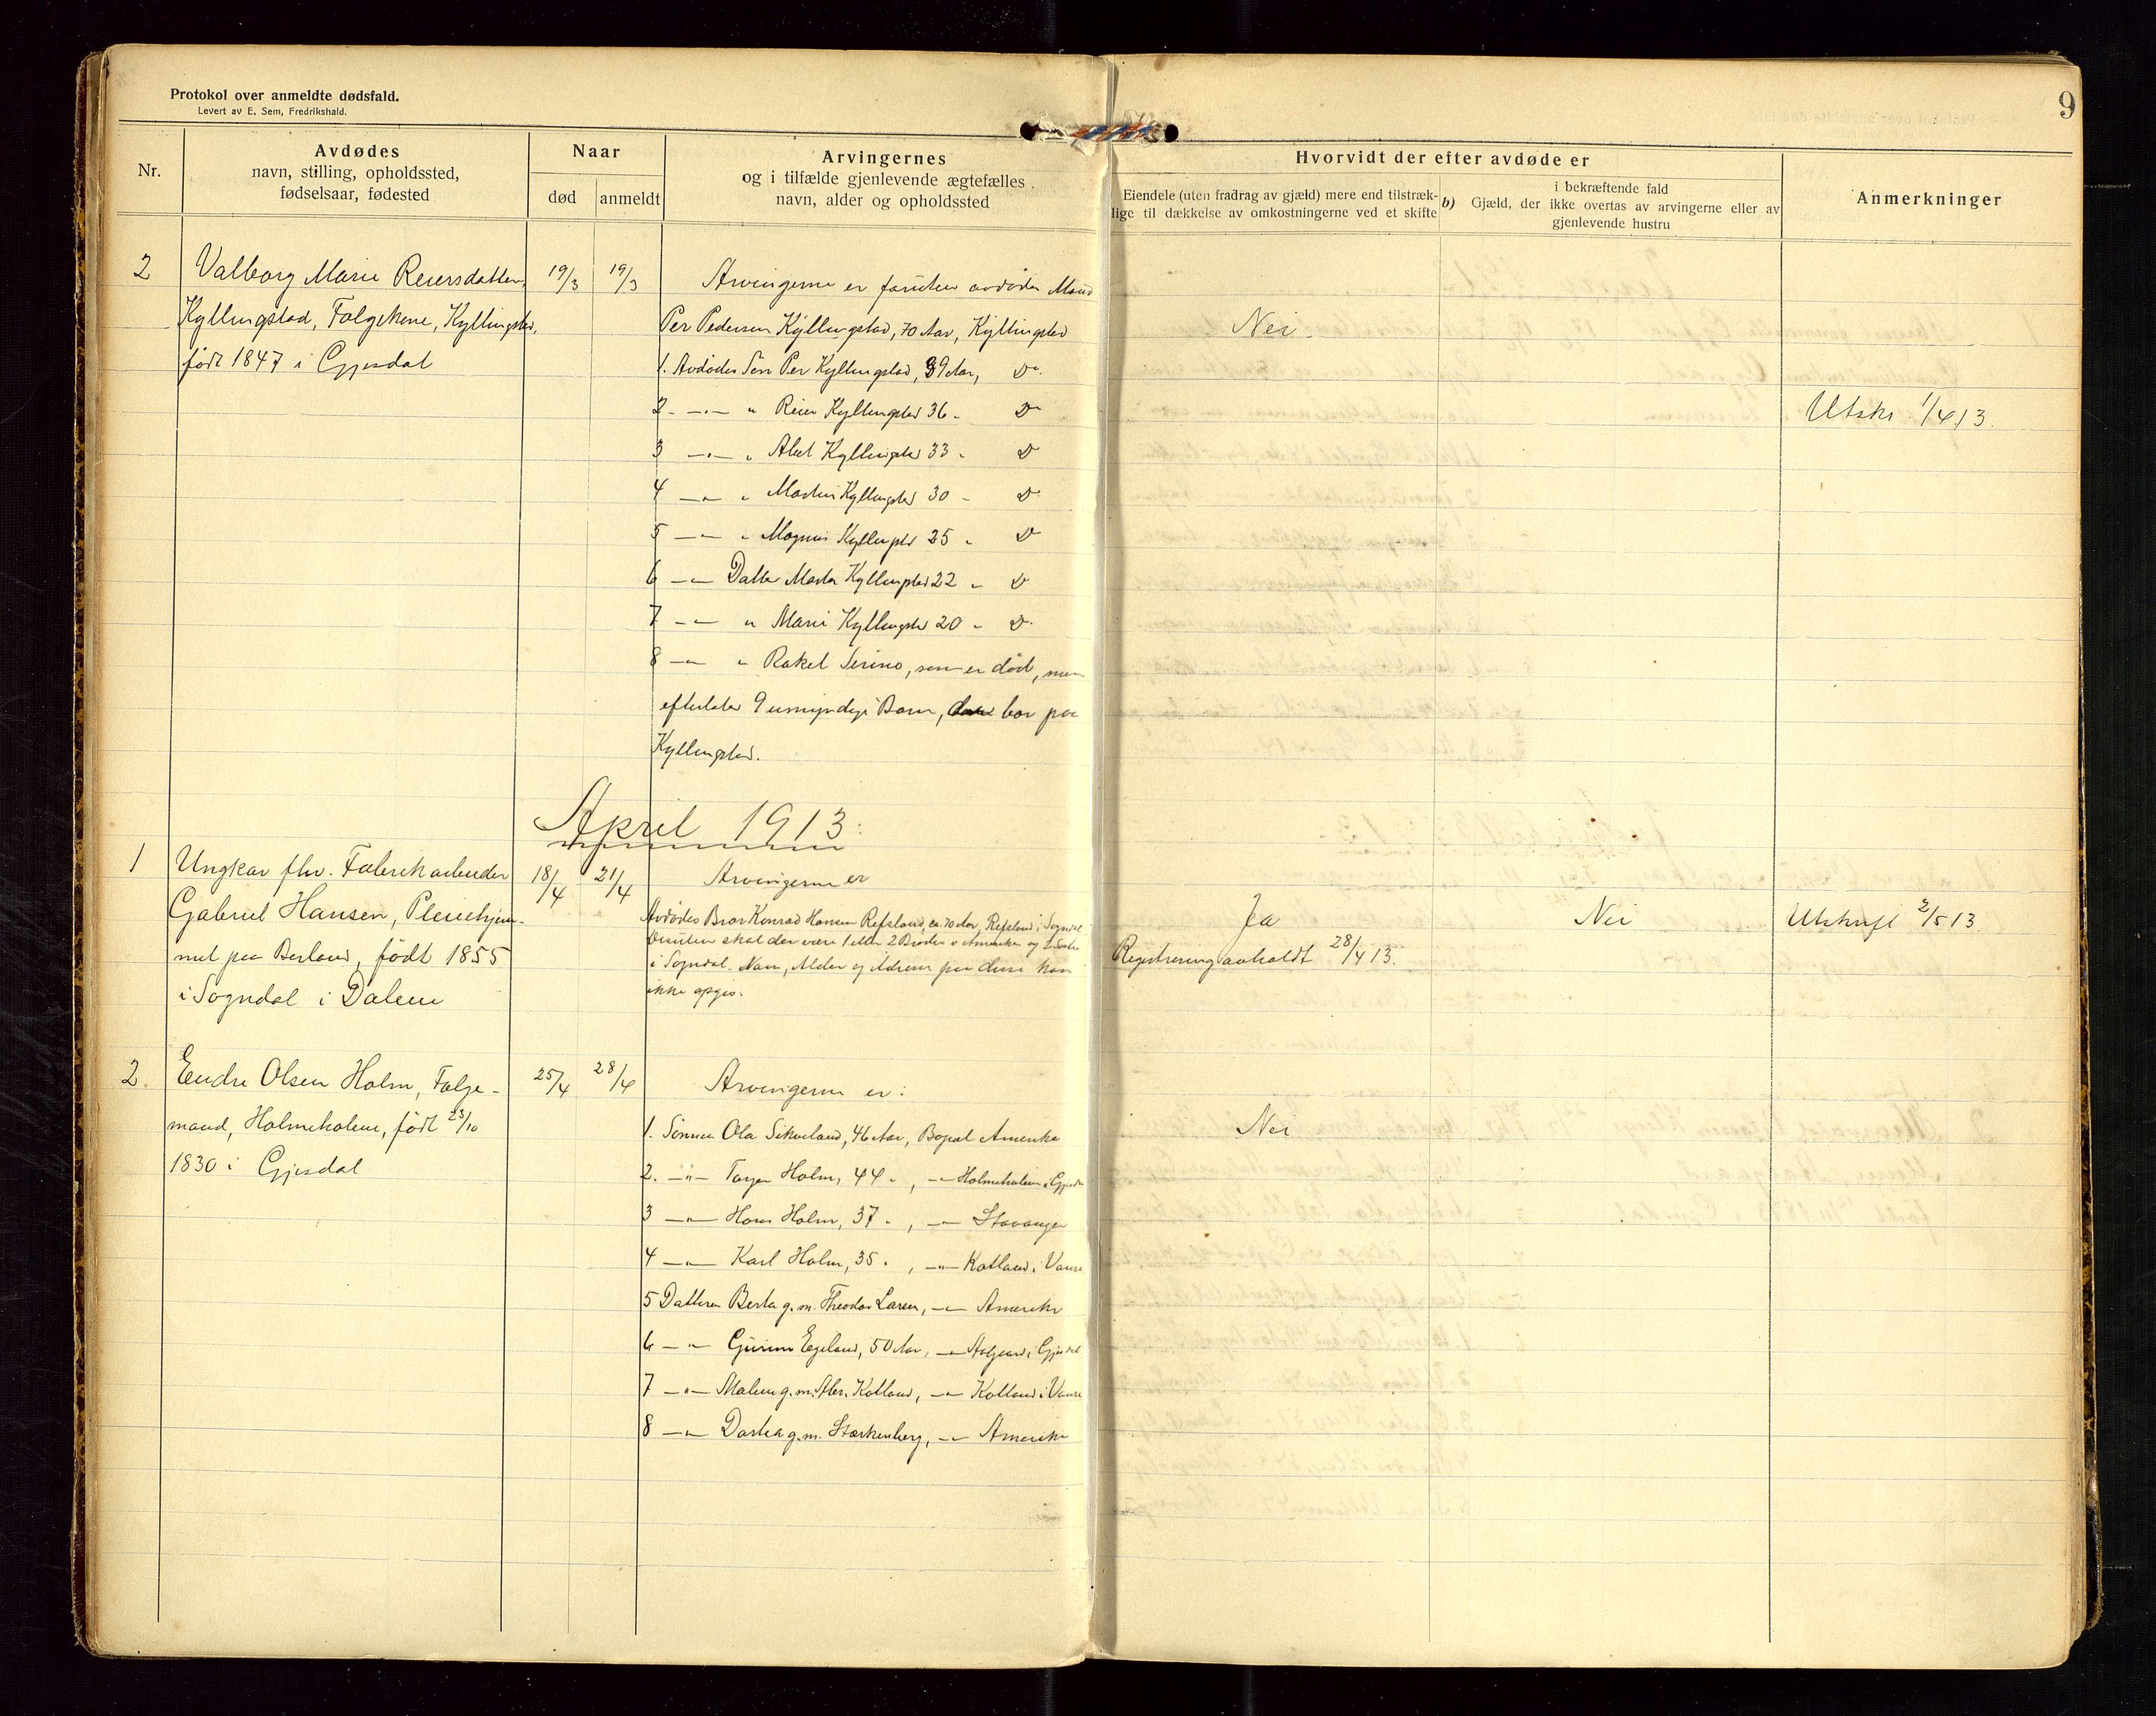 Protokol over anmeldte dødsfald.
Levert av E. Sem, Fredrikshald.
9
Nr.
Avdødes
navn, stilling, opholdssted,
fødselsaar, fødested
Naar
død
anmeldt
Arvingernes
og i tilfælde gjenlevende ægtefælles
navn, alder og opholdssted
Hvorvidt der efter avdøde er
Eiendele (uten fradrag av gjæld) mere end tilstræk-
lige til dækkelse av omkostningerne ved et skifte
b)
i bekræftende fald
Gjæld, der ikke overtas av arvingerne eller av
gjenlevende hustru
Anmerkninger
2
Valborg Marie Reiersdatter
Kyllingstad, Følgekone, Kyllingstad,
født 1847 i Gjesdal
19/3
19/3
Arvingerne er foruten avdødes Mand
Per Pedersen Kyllingstad, 70 Aar, Kyllingstad
1. Avdødes Søn Per Kyllingstad, 39 Aar, Do
2. —"— " Reier Kyllingstad 36 " Do
3 —"— " Abel Kyllingstad 33 " Do
4 —"— " Martin Kyllingstad 30 " Do
5 —"— " Magnus Kyllingstad 25 " Do
6 —"— Datter Marta Kyllingstad 22 " Do
7 —"— " Marie Kyllingstad 20 " Do
8 —"— " Rakel Serine, som er død, men
efterlater 9 umyndige Barn, bor paa
Kyllingstad.
Nei
Utskr. 1/4 13.
April 1913.
1
Ungkar fhv. Fabrikarbeider
Gabriel Hansen, Pleiehjem-
met paa Berland, født 1855
i Sogndal i Dalene
18/4
21/4
Arvingerne er
Avdødes Bror Konrad Hansen Refsland, ca. 70 Aar, Refsland i Sogndal
Desuten skal der være 1 eller 2 Brødre i Amerika og 2 Søstre
i Sogndal. Navn, Alder og Adresse paa disse kan
ikke opgis.
Ja
Registrering avholdt 28/4 13.
Nei
Utskrift 2/5 13
2.
Endre Olsen Holm, Følge-
mand, Holmeholene, født 23/10
1830 i Gjesdal
25/4
28/4
Arvingerne er:
1. Sønnen Ola Sikveland, 46 Aar, Bopæl Amerika
2. —"— Torger Holm, 44 ", —"— Holmeholene i Gjesdal
3 —"— Hans Holm, 37 ", —"— Stavanger
4 —"— Karl Holm, 35 ", —"— Kotland i Vanse
5 Datteren Berta g. m. Theodor Larsen, —"— Amerika
6 —"— Gurine Egeland, 50 Aar, —"— Aalgaard i Gjesdal
7 —"— Malene g. m. Abr. Kotland, —"— Kotland i Vanse
8 —"— Dorthea g. m. Størkenberg, —"— Amerika
Nei